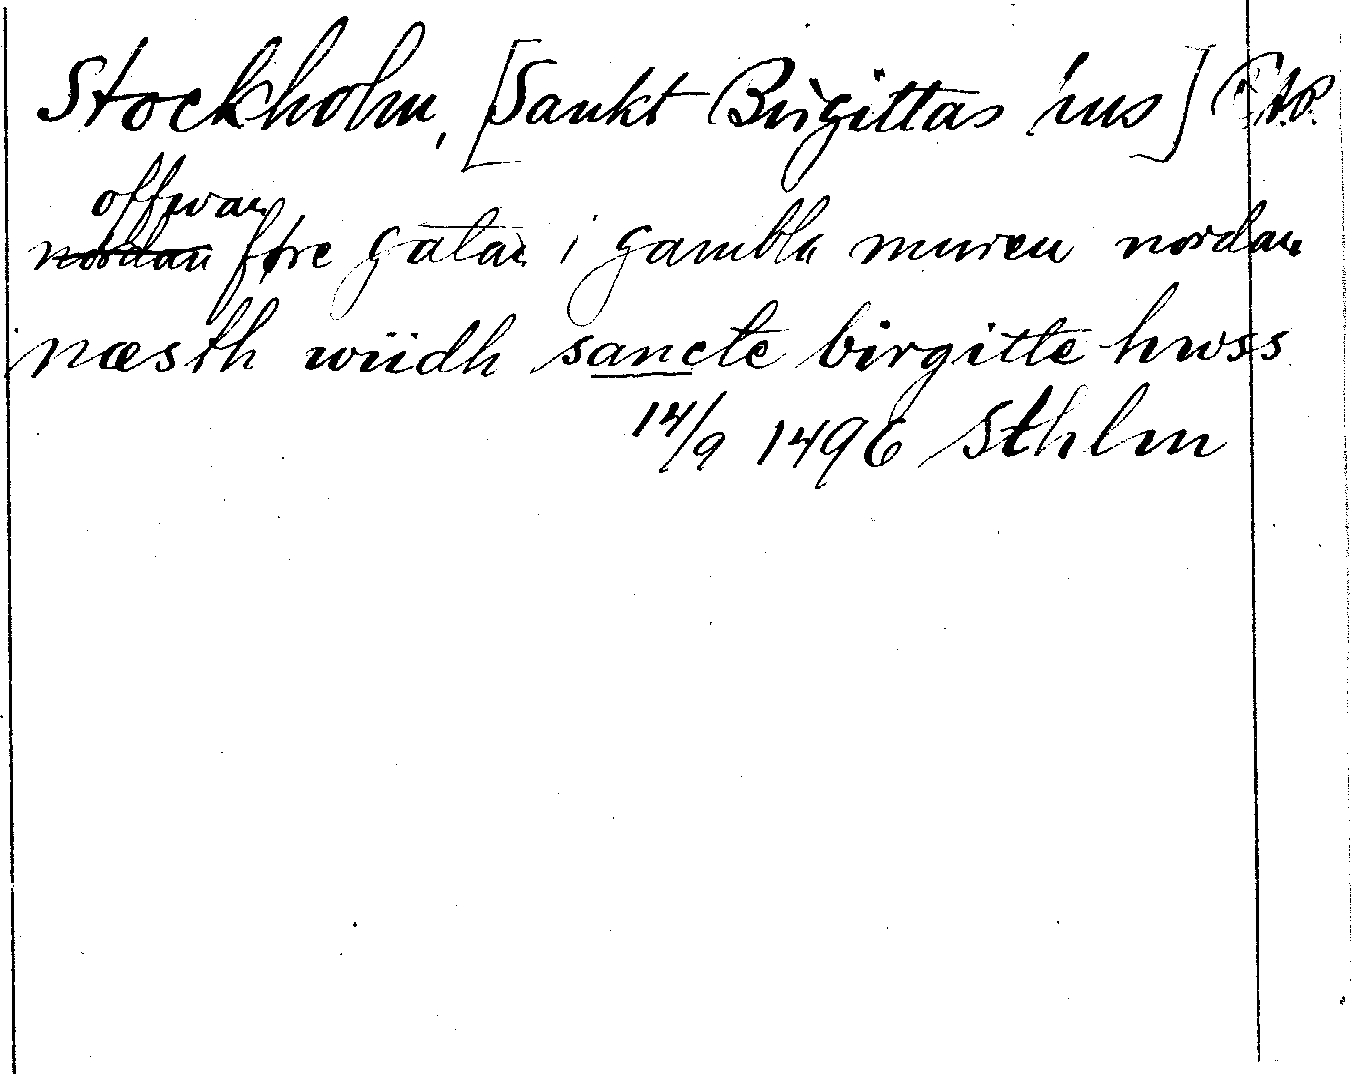 Stockholm, [Sankt Birgittas hus]
offwan
nordanføre gatan i gambla muren nordan
næsth wiidh sancte birgitte hwss
14/9 1496 Sthlm